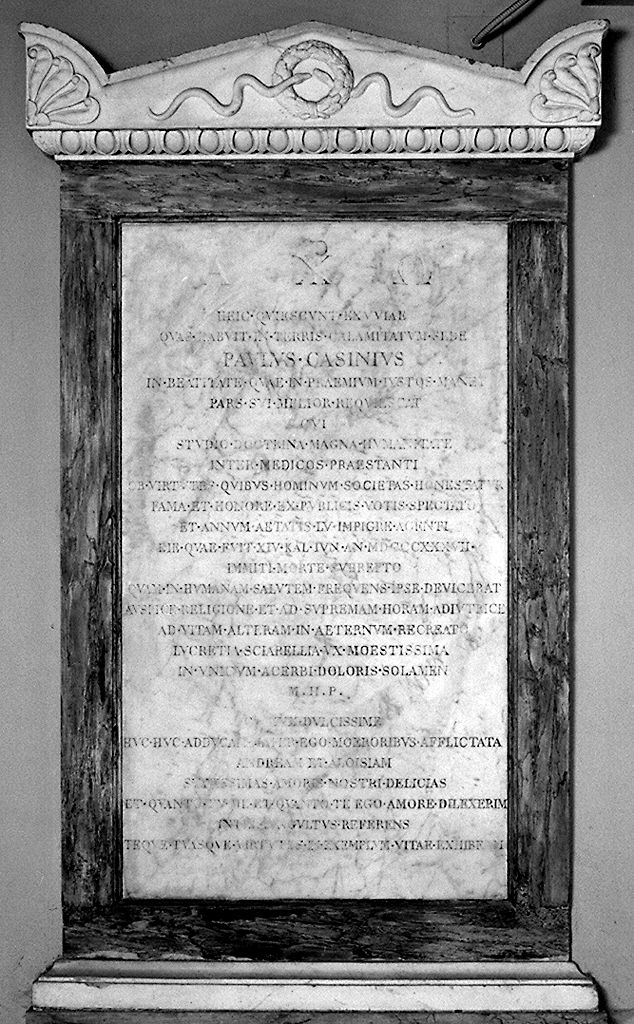 A ☧ Ω
HEIC·QVIESCVNT·EXVVIAE
QVAS·HABVIT·IN·TERRIS·CALAMITATVM·SEDE
PAVLVS·CASINIVS
IN·BEATITATE·QVAE·IN·PRAEMIVM·IVSTOS·MANET
PARS·SVI·MELIOR·REQVIESCAT
CVI
STVDIO·DOCTRINA·MAGNA·HVMANITATE
INTER·MEDICOS·PRAESTANTI
OB·VIRTVTES·QVIBVS·HOMINVM·SOCIETAS·HONESTATVR
FAMA·ET·HONORE·EX·PVBLICIS·VOTIS·SPECTATO
ET·ANNVM·AETATIS·LV·IMPIGRE·AGENTI
DIE·QVAE·FVIT·XIV·KAL·IVN·AN·MDCCCXXXVII·
IMMITI·MORTE·SVBREPTO
QVAM·IN·HVMANAM·SALVTEM·FREQVENS·IPSE·DEVICERAT
AVSPICE·RELIGIONE·ET·AD·SVPREMAM·HORAM·ADIVTRICE
AD·VITAM·ALTERAM·IN·AETERNVM·RECREATO
LVCRETIA·SCIARELLIA·VX·MOESTISSIMA
IN·VNICVM·ACERBI·DOLORIS·SOLAMEN
M.H.P.
DVLCISSIME
HVC·HVC·EGO·MOERORIBVS·AFFLICTATA
ANDREAM·ET·ALOISIAM
AMORIS·NOSTRI·DELICIAS
ET·QVANTO·ET·QVANTO·TE·EGO·AMORE·DILEXERIM
REFERENS
TEQVE·TVASQVE·VIRTVTES·EXEMPLVM·VITAE